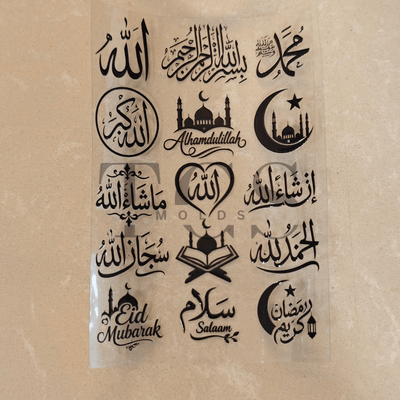 الله
بسم الله الرحمن الرحيم
محمد ﷺ
الله أكبر
Alhamdulillah
ما شاء الله
الله
إن شاء الله
TCS
MOLDS
سبحان الله
الحمد لله
Eid
Mubarak
سلام
Salaam
رمضان
كريم